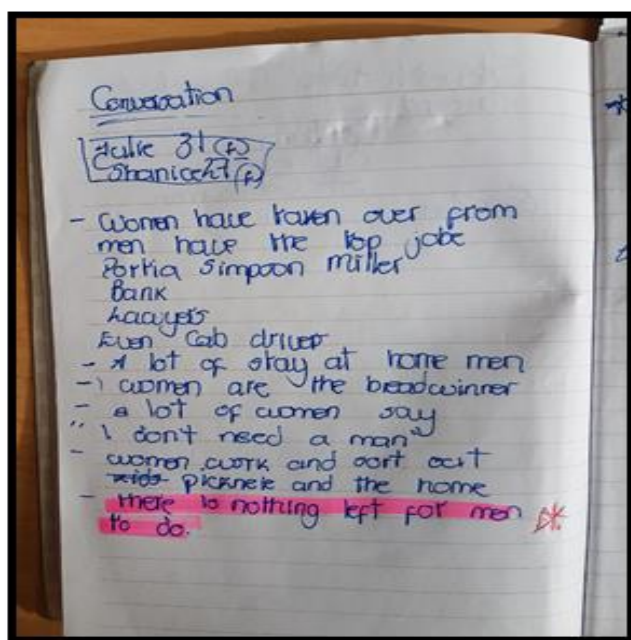 Conversation
Julie 31 (F)
Shanice 27 (F)
- Women have taken over from
men have the top jobs
Portia Simpson Miller
Bank
Lawyers
Even Cab driver
- A lot of stay at home men
- women are the breadwinner
- a lot of women say
"I don't need a man"
- women work and sort out
kids pickneie and the home
- there is nothing left for men
to do.